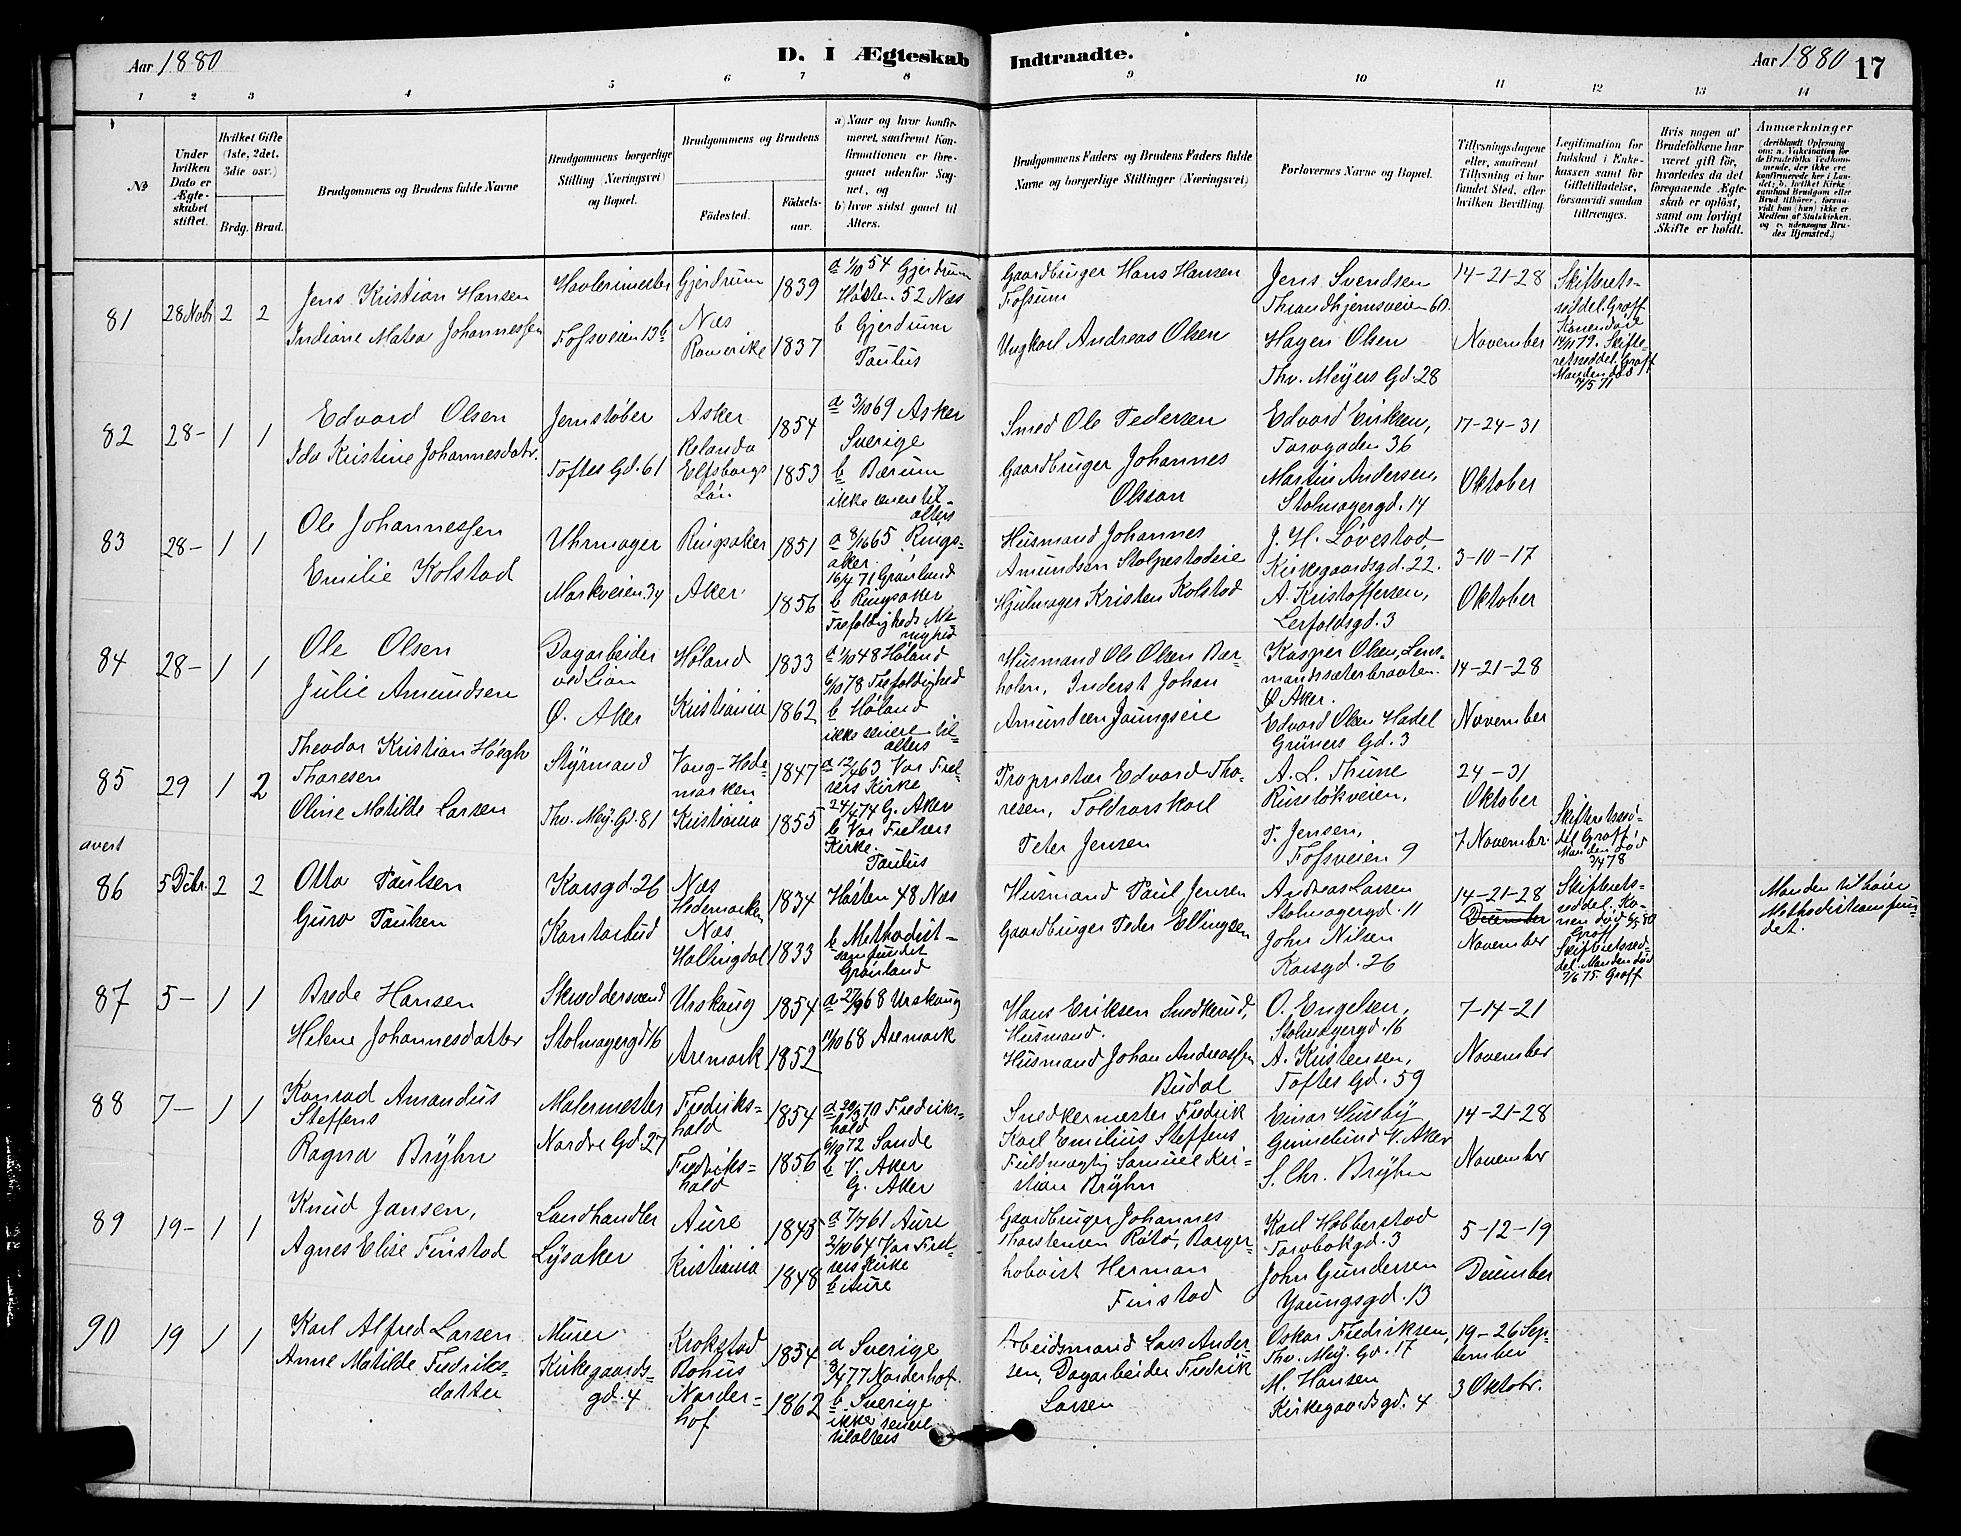 Aar 1880
D. I Ægteskab Indtraadte.
Aar 1880 17
1 2 3 4 5 6 7 8 9 10 11 12 13 14
№
Under hvilken Dato er Ægteskabet stiftet.
Hvilket Gifte (1ste, 2det, 3die osv.)
Brdg. Brud.
Brudgommens og Brudens fulde Navne
Brudgommens borgerlige Stilling (Næringsvei) og Bopæl.
Brudgommens og Brudens
Födested.
Födselsaar.
a) Naar og hvor konfirmeret, saafremt Konfirmationen er foregaaet udenfor Sognet, og
b) hvor sidst gaaet til Alters.
Brudgommens Faders og Brudens Faders fulde Navne og borgerlige Stillinger (Næringsvei)
Forlovernes Navne og Bopæl.
Tillysningsdagene eller, saafremt Tillysning ei har fundet Sted, efter hvilken Bevilling.
Legitimation for Indskud i Enkekassen samt for Giftetilladelse, forsaavidt saadan tiltrænges.
Hvis nogen af Brudefolkene har været gift för, hvorledes da det foregaaende Ægteskab er oplöst, samt om lovligt Skifte er holdt.
Anmærkninger
81 28 Nobr 2 2
Jens Kristian Hansen
Indiane Matea Johannessen
Havlerimester
Fossveien 13 b
Gjerdrum 1839
Næs Romerike 1837
a 1/10 54 Gjerdrum
Høsten 52 Næs
b Gjerdrum
Paulus
Gaardbruger Hans Hansen
Fossum
Ungkarl Andreas Olsen
Jens Svendsen
Throndhjemsveien 60.
Hagen Olsen
Thv. Meyers Gd. 28
14-21-28
November
Skifterets-
seddel. Graff
Konen død
14/11 79. Skifte-
retsseddel. Graff
Manden død
7/5 71
82 28- 1 1
Edvard Olsen
Ida Kristine Johannesdatr.
Jernstøber
Toftes Gd. 61
Asker 1854
Relanda
Elfsborgs
Län 1853
a 3/10 69 Asker
Sverige
b Bærum
ikke senere til-
alters
Smed Ole Pedersen
Gaardbruger Johannes
Olsson
Edvard Eriksen,
Torvgaden 36
Martin Andersen,
Stolmagergd. 14
17-24-31
Oktober
83 28- 1 1
Ole Johannessen
Emilie Kolstad
Uhrmager
Markveien 34
Ringsaker 1851
Aker 1856
a 8/10 65 Rings-
aker
16/4 71 Grønland
b Ringsaker
Trefoldigheds Me-
nighed
Husmand Johannes
Amundsen Stolpestadeie
Hjulmager Kristen Kolstad
J. H. Løvestad
Kirkegaardsgd. 22.
A. Kristoffersen,
Lerfoldsgd. 3
3-10-17
Oktober
84 28- 1 1
Ole Olsen
Julie Amundsen
Dagarbeider
ved Lian
Ø. Aker
Høland 1833
Kristiania 1862
a 1/10 48 Høland
6/10 78 Trefoldighed
b Høland
ikke senere til-
alters
Husmand Ole Olsen Bær-
holen, Inderst Johan
Amundsen Jaungseie
Kasper Olsen, Lens-
mandssæterbraaten
Ø Aker.
Edvard Olsen Hadel
Grüners Gd. 3
14-21-28
November
85 29 1 2
avert
Theodor Kristian Høegh
Thoresen
Oline Matilde Larsen
Styrmand
Thv. Mey. Gd. 81
Vang-Hede-
marken 1847
Kristiania 1855
a 12/4 63 Vor Frel-
sers Kirke
24/4 74 G. Aker
b Vor Frelsers
Kirke.
Paulus
Proprietær Edvard Tho-
resen, Toldvarskarl
Peter Jensen
A. L. Thune
Ruseløkveien,
P. Jensen,
Fossveien 9
24-31
Oktober
7 November
Skifteretssed-
del Graff
Manden død
3/4 78
86 5 Decbr. 2 2
Otto Paulsen
Guro Paulsen
Korsgd. 26
Kontorbud
Næs
Hedemarken 1834
Næs
Hallingdal 1833
Høsten 48 Næs
b Methodist-
samfundet
Grønland
Husmand Paul Jensen
Gaardbruger Peder Ellingsen
Andreas Larsen
Stolmagergd. 11
John Nilsen
Korsgd. 26
14-21-28
December
November
Skifterets-
seddel. Ko-
nen død 6/5 80
Graff
Skifteretssed-
del. Manden død
7/6 75 Graff
Manden tilhører
Methodistsamfun-
det.
87 5- 1 1
Brede Hansen
Helene Johannesdatter
Skreddersvend
Stolmagergd 16
Urskoug 1854
Aremark 1852
a 27/9 68 Urskoug
11/10 68 Aremark
Hans Eriksen Snedkerud,
Husmand.
Husmand Johan Andreassen
Budal
O. Engelsen,
Stolmagergd. 16
A. Kristensen,
Toftes Gd. 59
7-14-21
November
88 7- 1 1
Konrad Amandus
Steffens
Ragna Bryhn
Malermester
Nordre Gd. 27
Fredriks-
hald 1854
Fredriks-
hald 1856
a 20/3 70 Fredriks-
hald
6/10 72 Sande
b V. Aker
G. Aker
Snedkermester Fredrik
Karl Emilius Steffens
Fuldmægtig Samuel Kri-
stian Bryhn
Einar Huseby
Gimmelund V. Aker
S. Chr. Bryhn
14-21-28
November
89 19- 1 1
Knud Jansen,
Agnes Elise Finstad
Landhandler
Lysaker
Aure 1845
Kristiania 1848
a 7/7 61 Aure
2/10 64 Vor Frel-
sers Kirke
b Aure
Gaardbruger Johannes
Thorstensen Røtø, Barger-
hobvist Herman
Finstad
Karl Hobberstad
Torvbakgd. 3
John Gundersen
Youngsgd. 13
5-12-19
December
90 19 1 1
Karl Alfred Larsen
Anne Matilde Fredriks-
datter
Murer
Kirkegaards-
gd. 4
Krokstad
Bohus 1854
Norder-
hof 1862
a Sverige
3/4 77 Norderhof.
b Sverige
ikke senere
tilalters
Arbeidsmand Lars Ander-
sen, Dagarbeider Fredrik
Larsen
Oskar Fredriksen,
Thv. Mey. Gd. 17
M. Hansen
Kirkegaardsgd. 4
19-26 Sep-
tember
3 Oktobr.